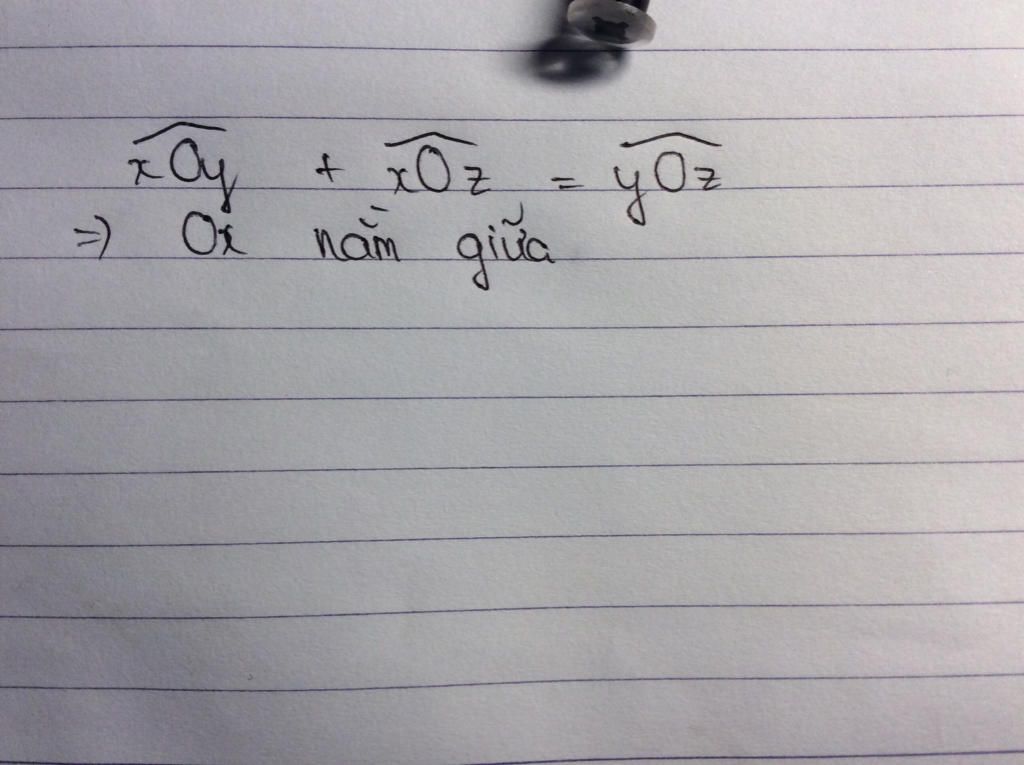 $\widehat{xOy} + \widehat{xOz} = \widehat{yOz}$
=> Ox nằm giữa